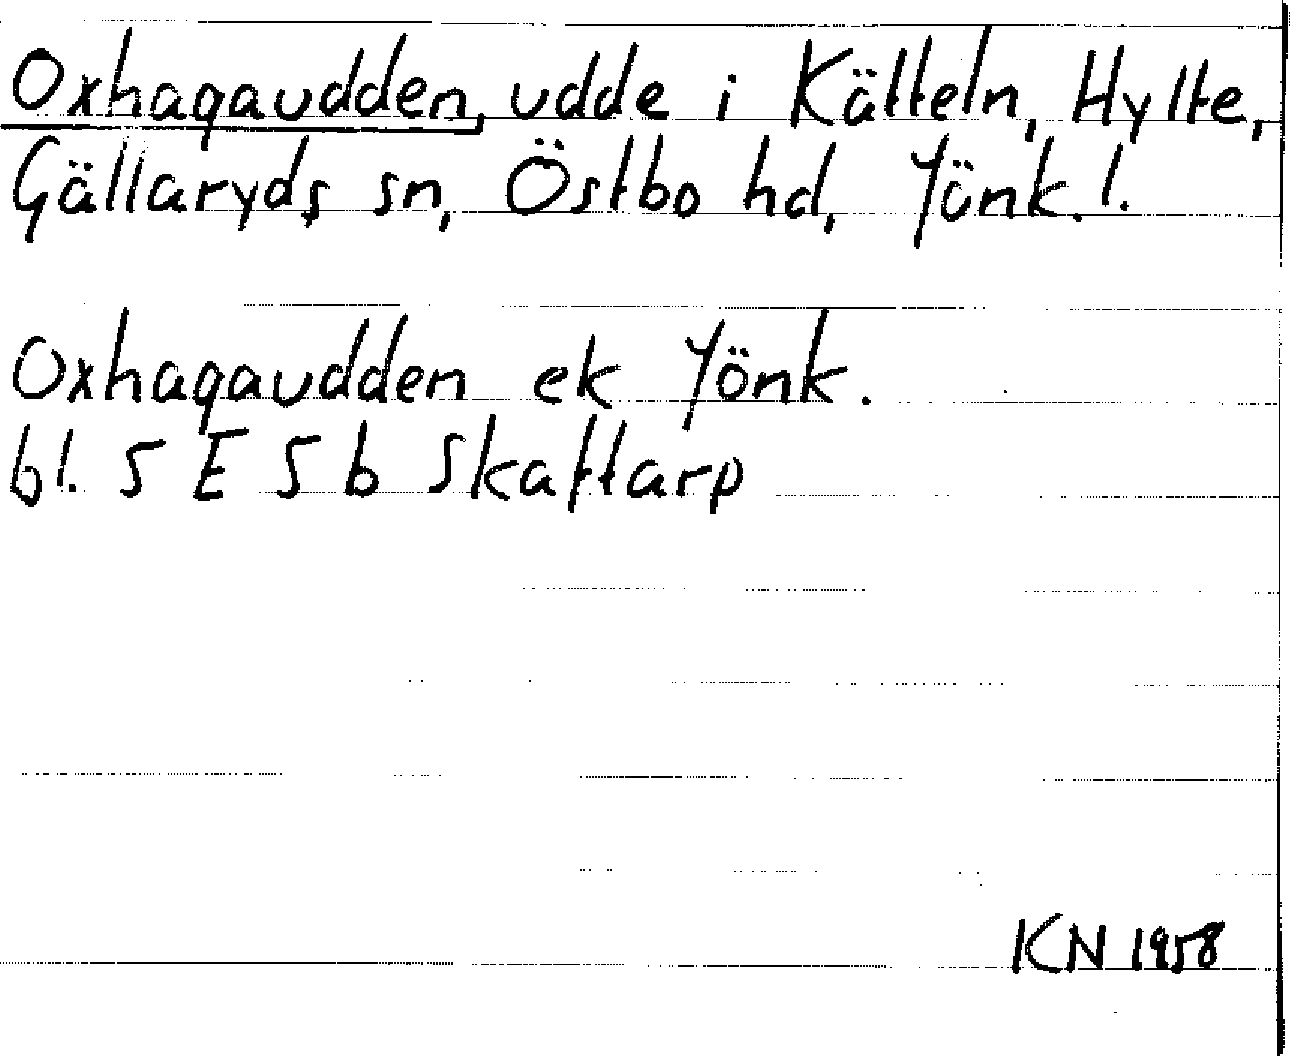 Oxhagaudden, udde i Kätteln, Hylte,
Gällaryds sn, Östbo hd, Jönk. l.
Oxhagaudden ek Jönk.
bl. 5 E 5 b Skaftarp
KN 1958